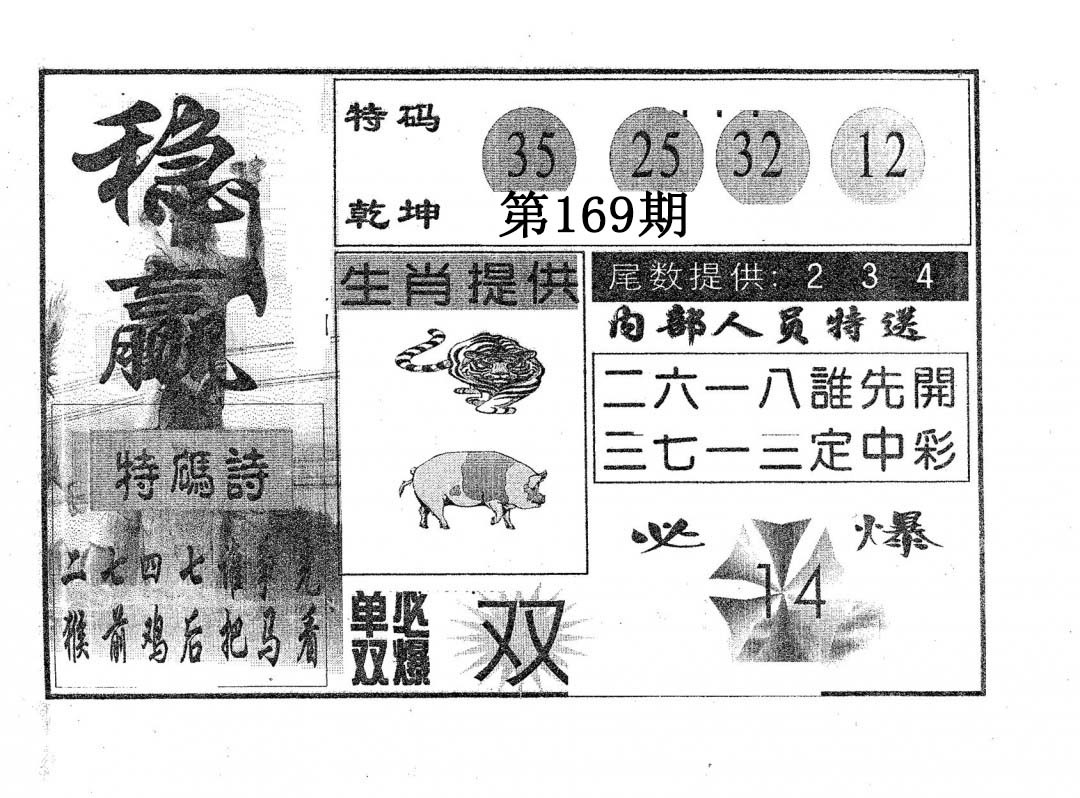 稳赢
特碼詩
二七四七谁争先
猴前鸡后把马看
特码
35 25 32 12
乾坤
第169期
生肖提供
尾数提供: 2 3 4
内部人员特送
二六一八誰先開
三七一三定中彩
必 爆
14
单双必爆
双